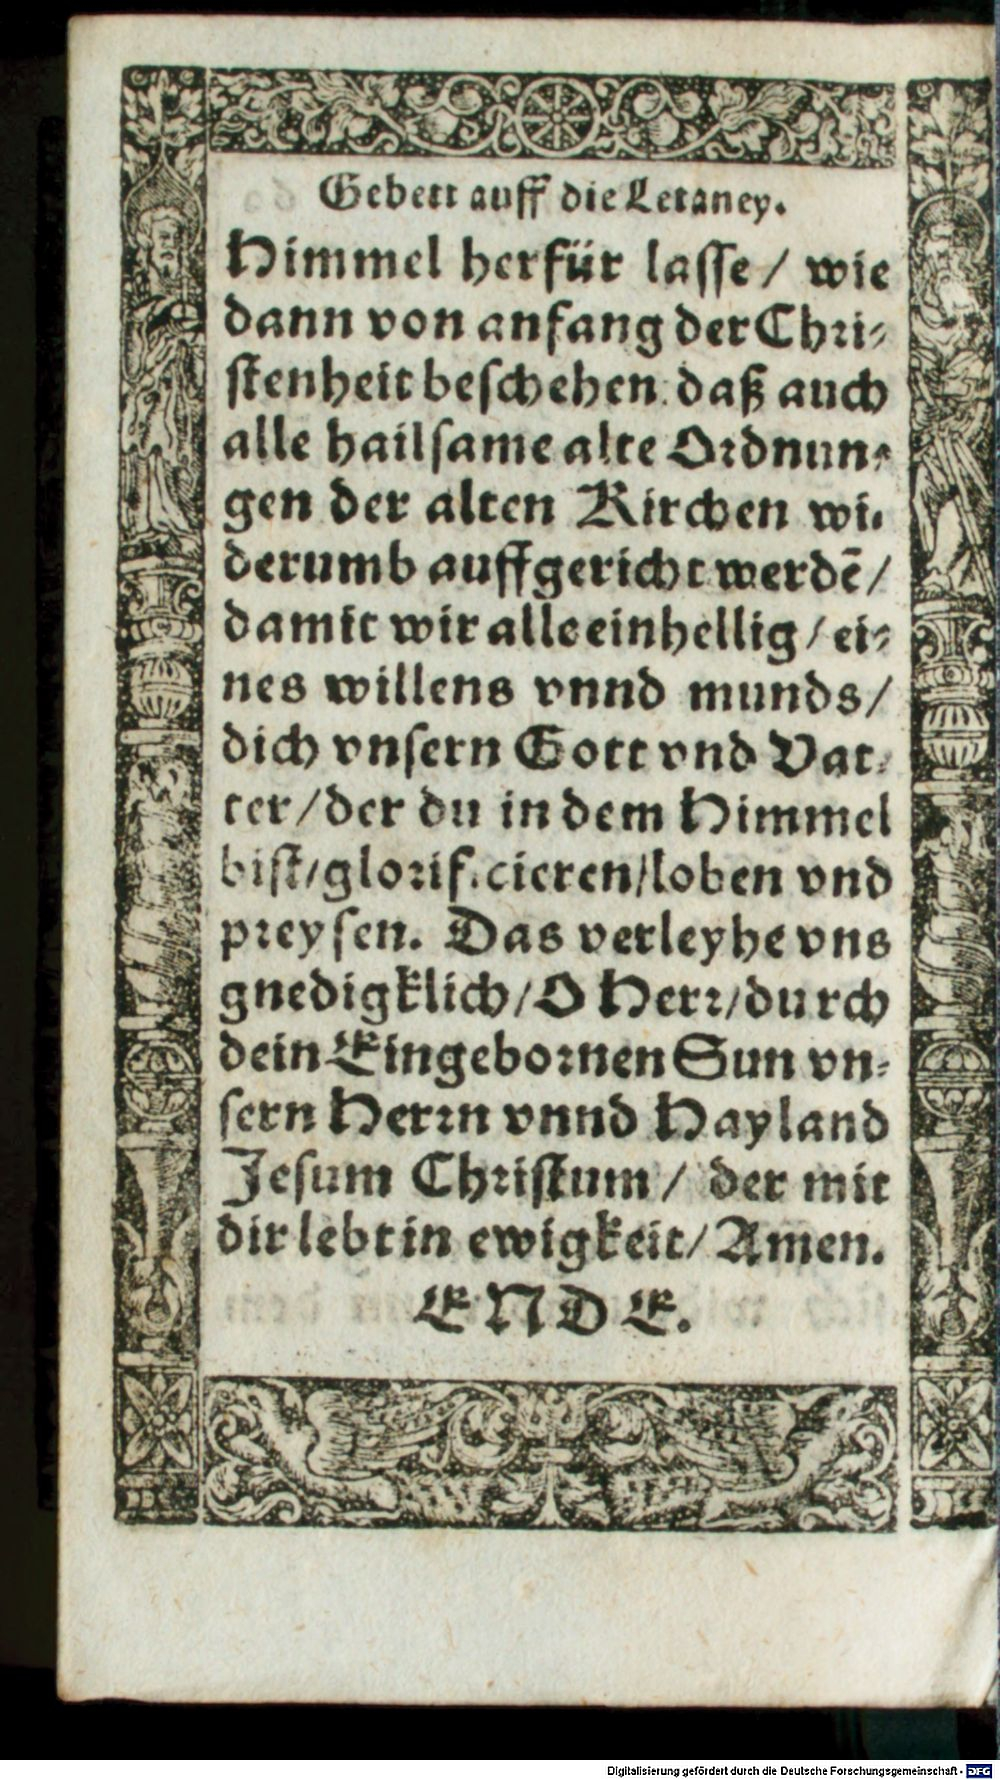 Gebett auff die Letaney.
Himmel herfür lasse/ wie
dann von anfang der Chri-
stenheit beschehen: daß auch
alle hailsame alte Ordnun-
gen der alten Kirchen wi-
derumb auffgericht werdē/
damit wir alle einhellig/ ei-
nes willens vnnd munds/
dich vnsern Gott vnd Vat-
ter/ der du in dem Himmel
bist/ glorificieren/ loben vnd
preysen. Das verleyhe vns
gnedigklich/ O Herr/ durch
dein Eingebornen Sun vn-
sern Herrn vnnd Hayland
Jesum Christum/ der mit
dir lebt in ewigkeit/ Amen.
ENDE.
Digitalisierung gefördert durch die Deutsche Forschungsgemeinschaft - DFG